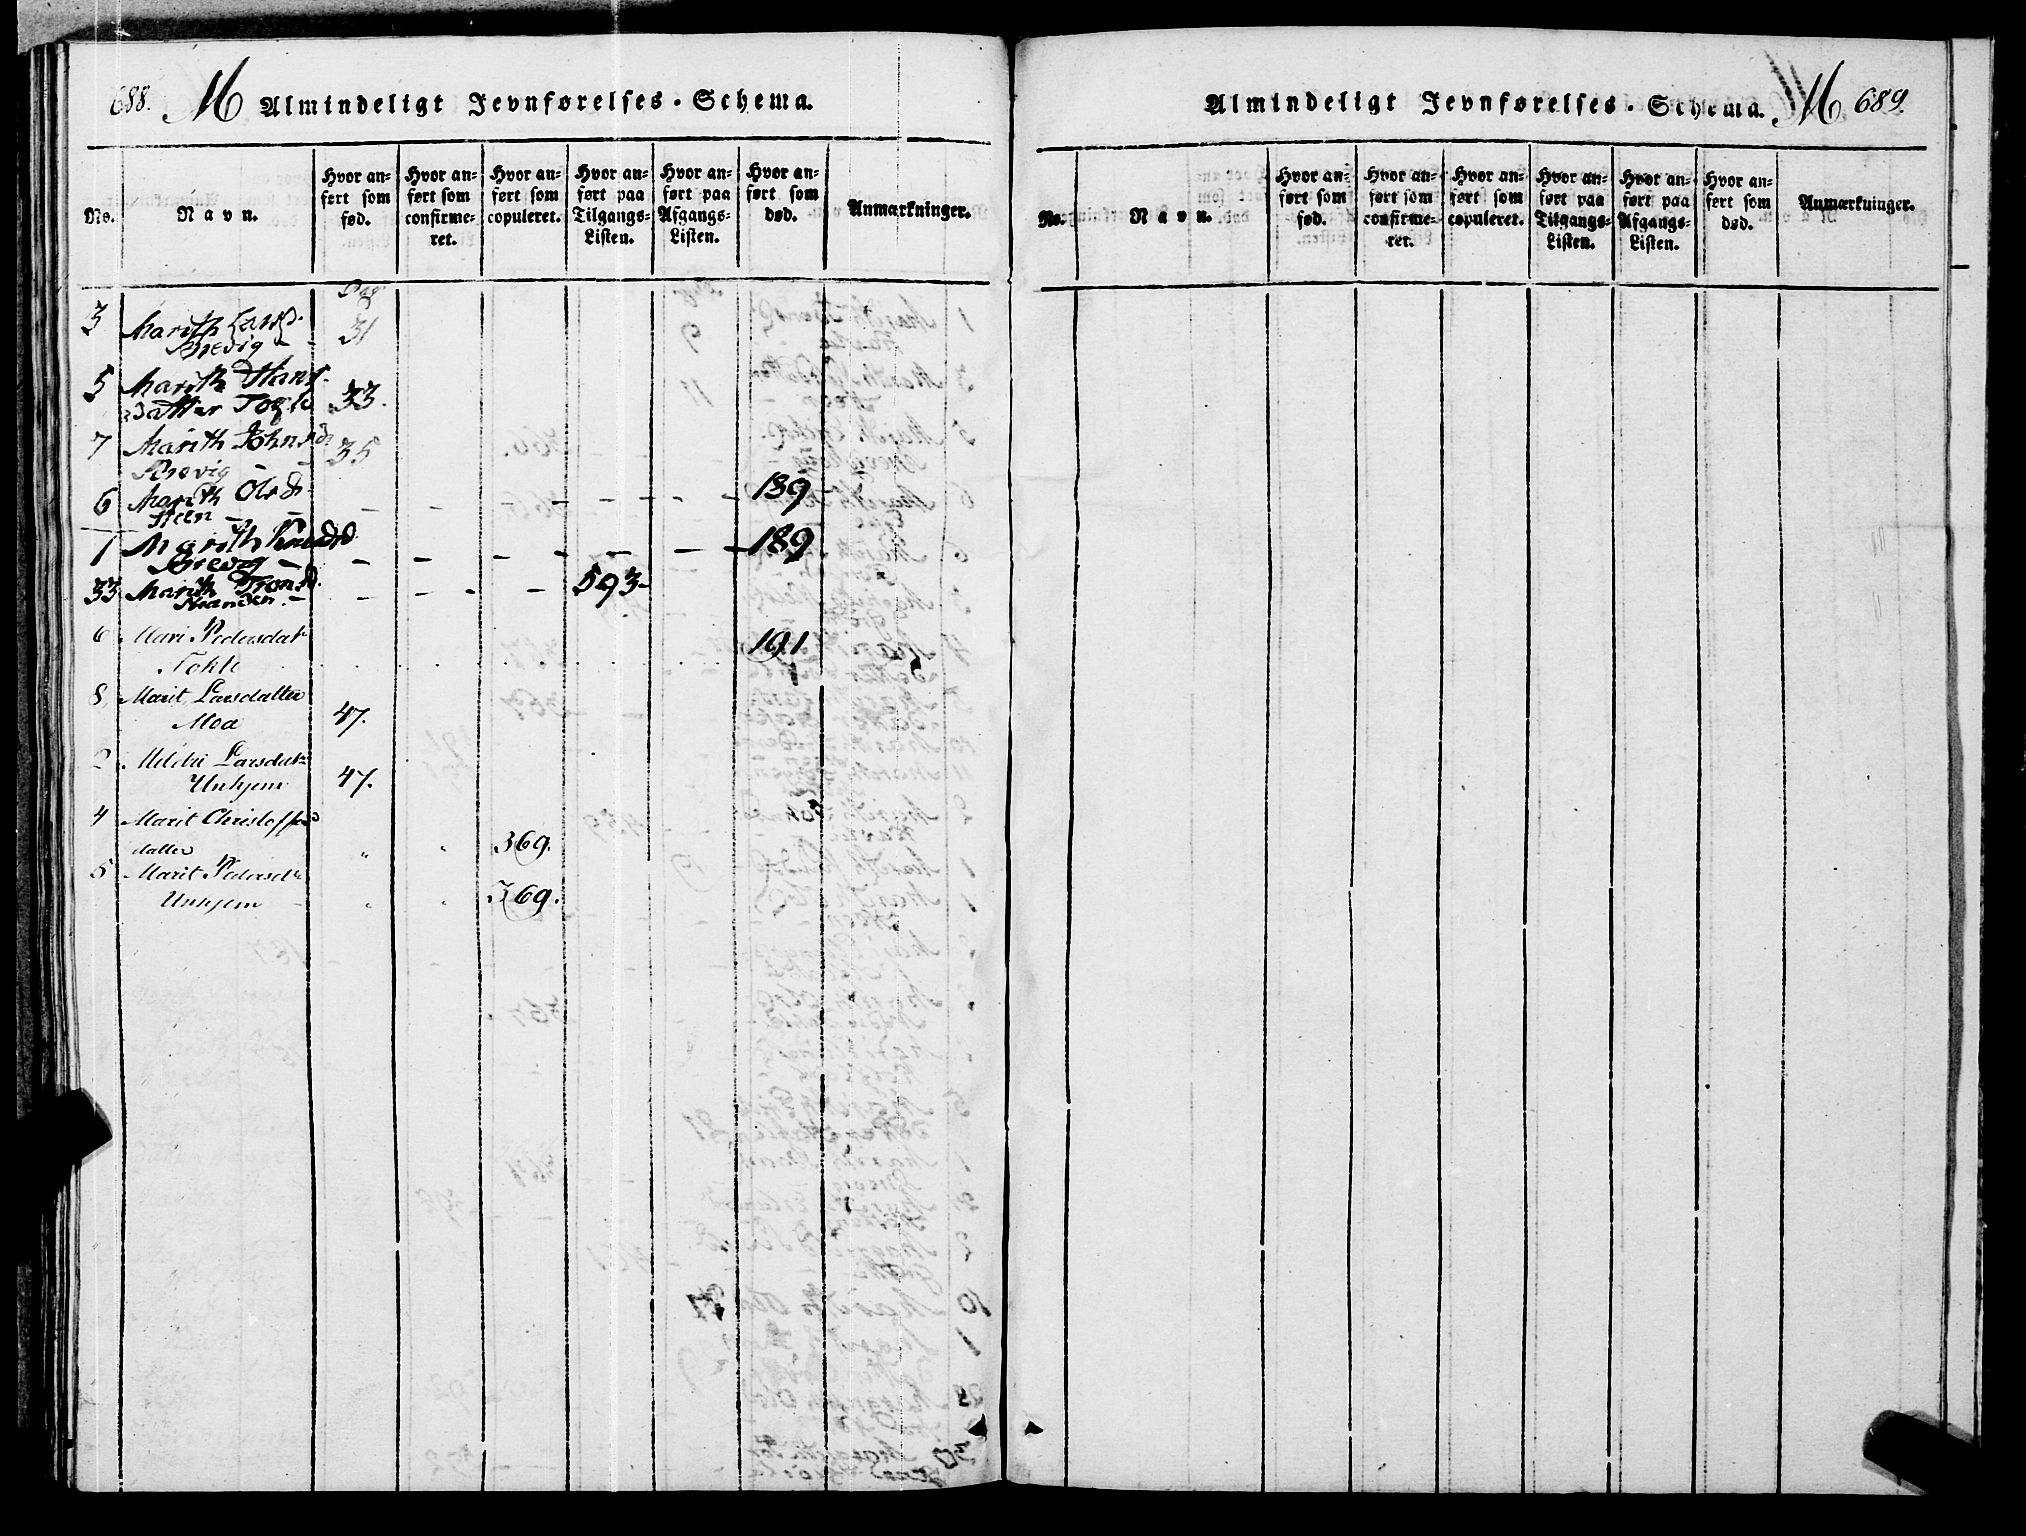 688. M Almindeligt Jevnførelses-Schema.
No.
Navn.
Hvor an-
ført som
fød.
Hvor an-
ført som
confirme-
ret.
Hvor an-
ført som
copuleret.
Hvor an-
ført paa
Tilgangs-
Listen.
Hvor an-
ført paa
Afgangs-
Listen.
Hvor an-
ført som
død.
Anmærkninger.
Pag
3 Marith Larsd.
Brevig - - 31
5 Marith Hans-
Datter Togle 33.
7 Marith Johnsd
Brevig - - 35
6 Marith Olsd.
Steen - - - - - - - - 189
1 Marith Knudsd
Brevig - - - - - - - 189
33 Marith Trondsd.
- - - - - 593-
6 Mari Pedersdatr
Tokle 191
8 Marit Larsdatter
Moa 47.
2 Mildri Larsdatr
Unhjem 47.
4 Marit Christoffers
datter " " 369.
5 Marit Pedersdr
Unhjem - " " 369.
Almindeligt Jevnførelses-Schema. M 689.
No.
Navn.
Hvor an-
ført som
fød.
Hvor an-
ført som
confirme-
ret.
Hvor an-
ført som
copuleret.
Hvor an-
ført paa
Tilgangs-
Listen.
Hvor an-
ført paa
Afgangs-
Listen.
Hvor an-
ført som
død.
Anmærkninger.